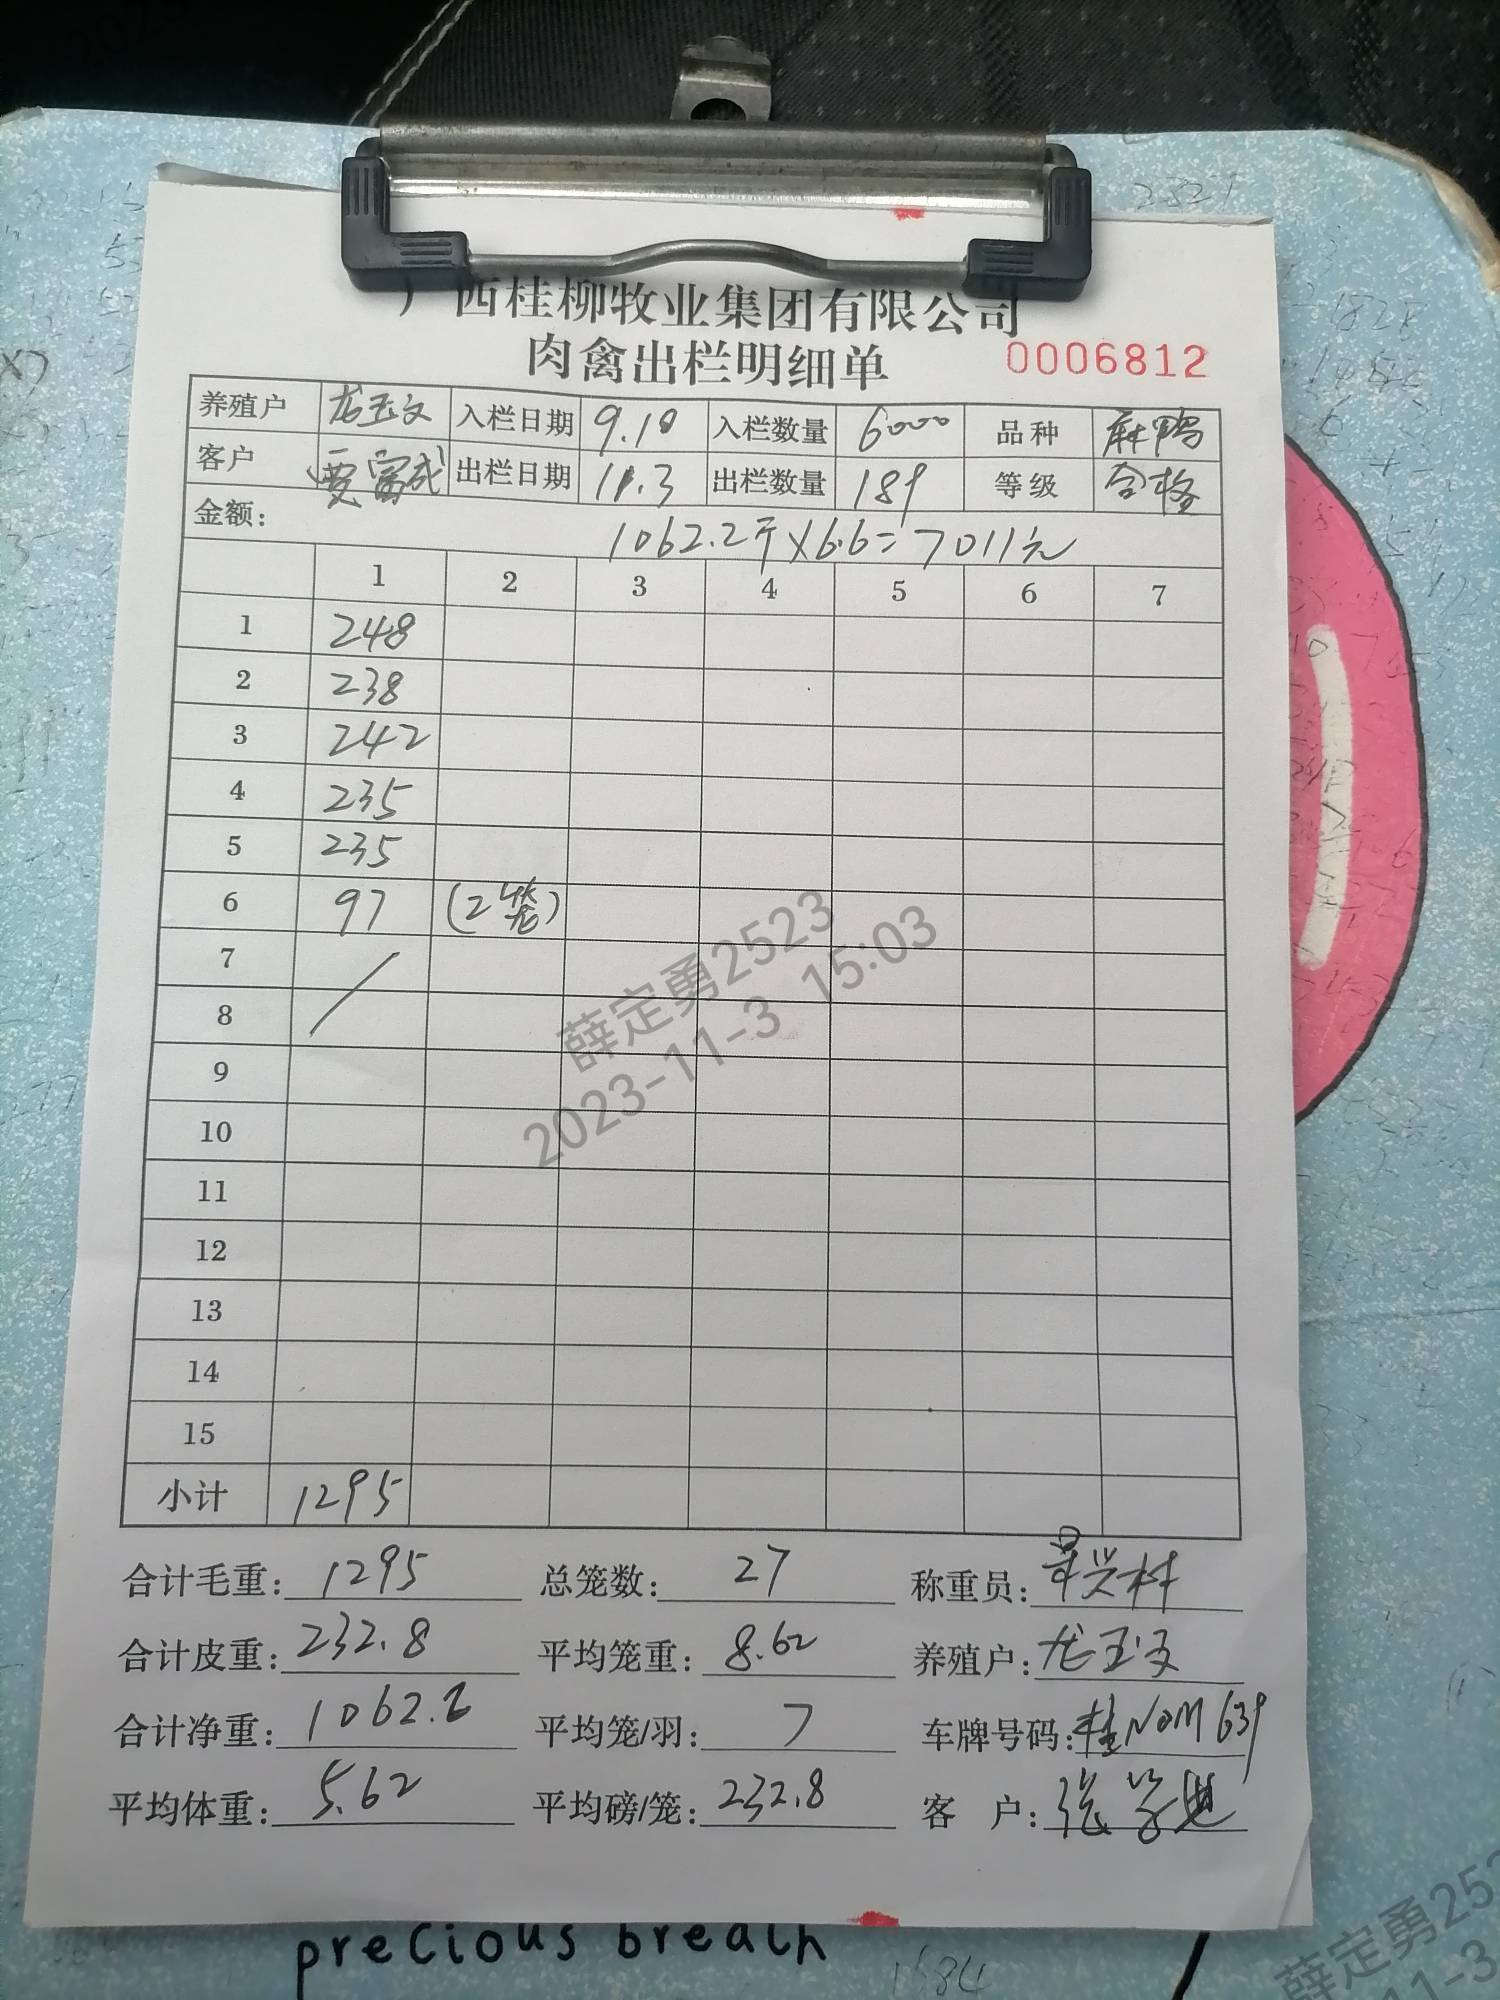 广西桂柳牧业集团有限公司
肉禽出栏明细单 0006812
养殖户 龙玉文 入栏日期 9.18 入栏数量 6000 品种 麻鸭
客户 贾富成 出栏日期 11.3 出栏数量 189 等级 合格
金额: 1062.2斤×6.6=7011元
1 2 3 4 5 6 7
1 248
2 238
3 242
4 235
5 235
6 97 (2笼)
7
8
9
10
11
12
13
14
15
小计 1295
合计毛重: 1295 总笼数: 27 称重员:
合计皮重: 232.8 平均笼重: 8.62 养殖户: 龙玉文
合计净重: 1062.2 平均笼/羽: 7 车牌号码: 桂N0M639
平均体重: 5.62 平均磅/笼: 232.8 客户: 张
薛定勇2523
2023-11-3 15:03
precious breath
1584